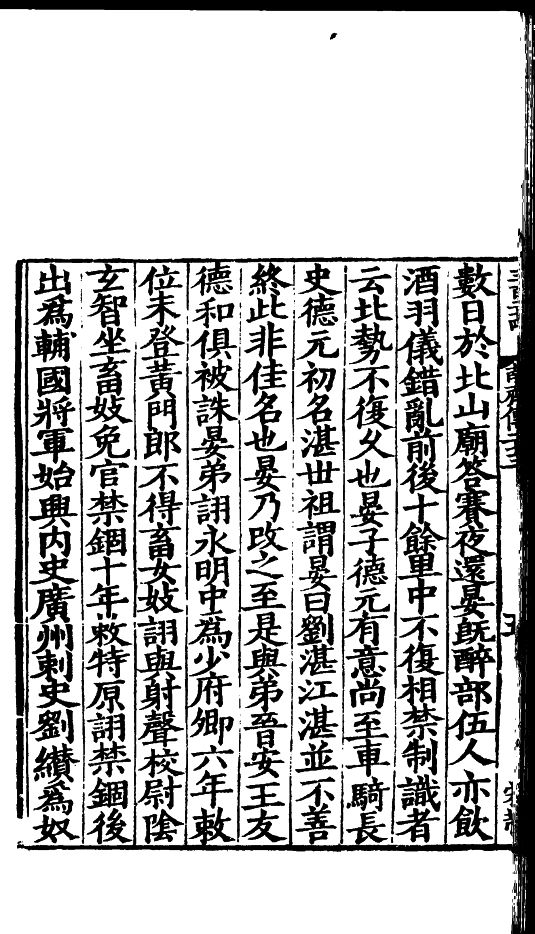 數日於北山廟荅賽夜還晏旣醉部伍人亦飲
酒羽儀錯亂前後十餘里中不復相禁制識者
云此勢不復久也晏子德元有意尚至車騎長
史德元初名湛世祖謂晏曰劉湛江湛並不善
終此非佳名也晏乃改之至是與弟晉安王友
德和俱被誅晏弟詡永明中爲少府卿六年敕
位未登黃門郎不得畜女妓詡與射聲校尉隂
玄智坐畜妓免官禁錮十年敕特原詡禁錮後
出爲輔國將軍始興內史廣州刺史劉纘爲奴